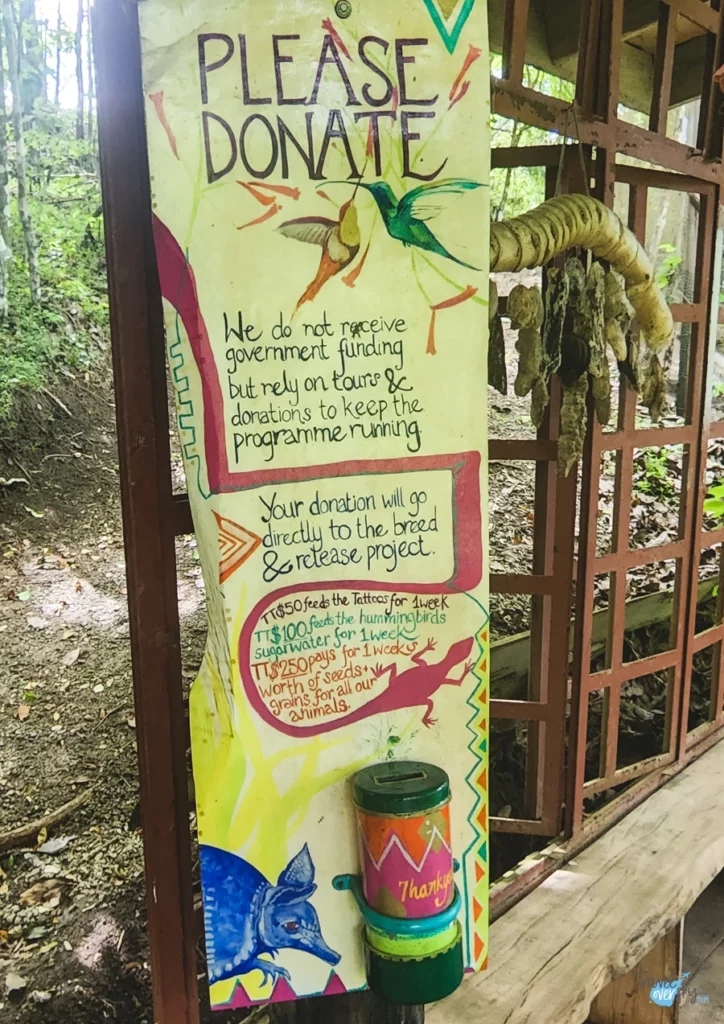 PLEASE
DONATE
We do not receive
government funding
but rely on tours &
donations to keep the
programme running.
Your donation will go
directly to the breed
& release project.
TT$50 feeds the Tattoos for 1 week
TT$100 feeds the hummingbirds
sugarwater for 1 week
TT$250 pays for 1 weeks
worth of seeds +
grains for all our
animals.
Thankyo